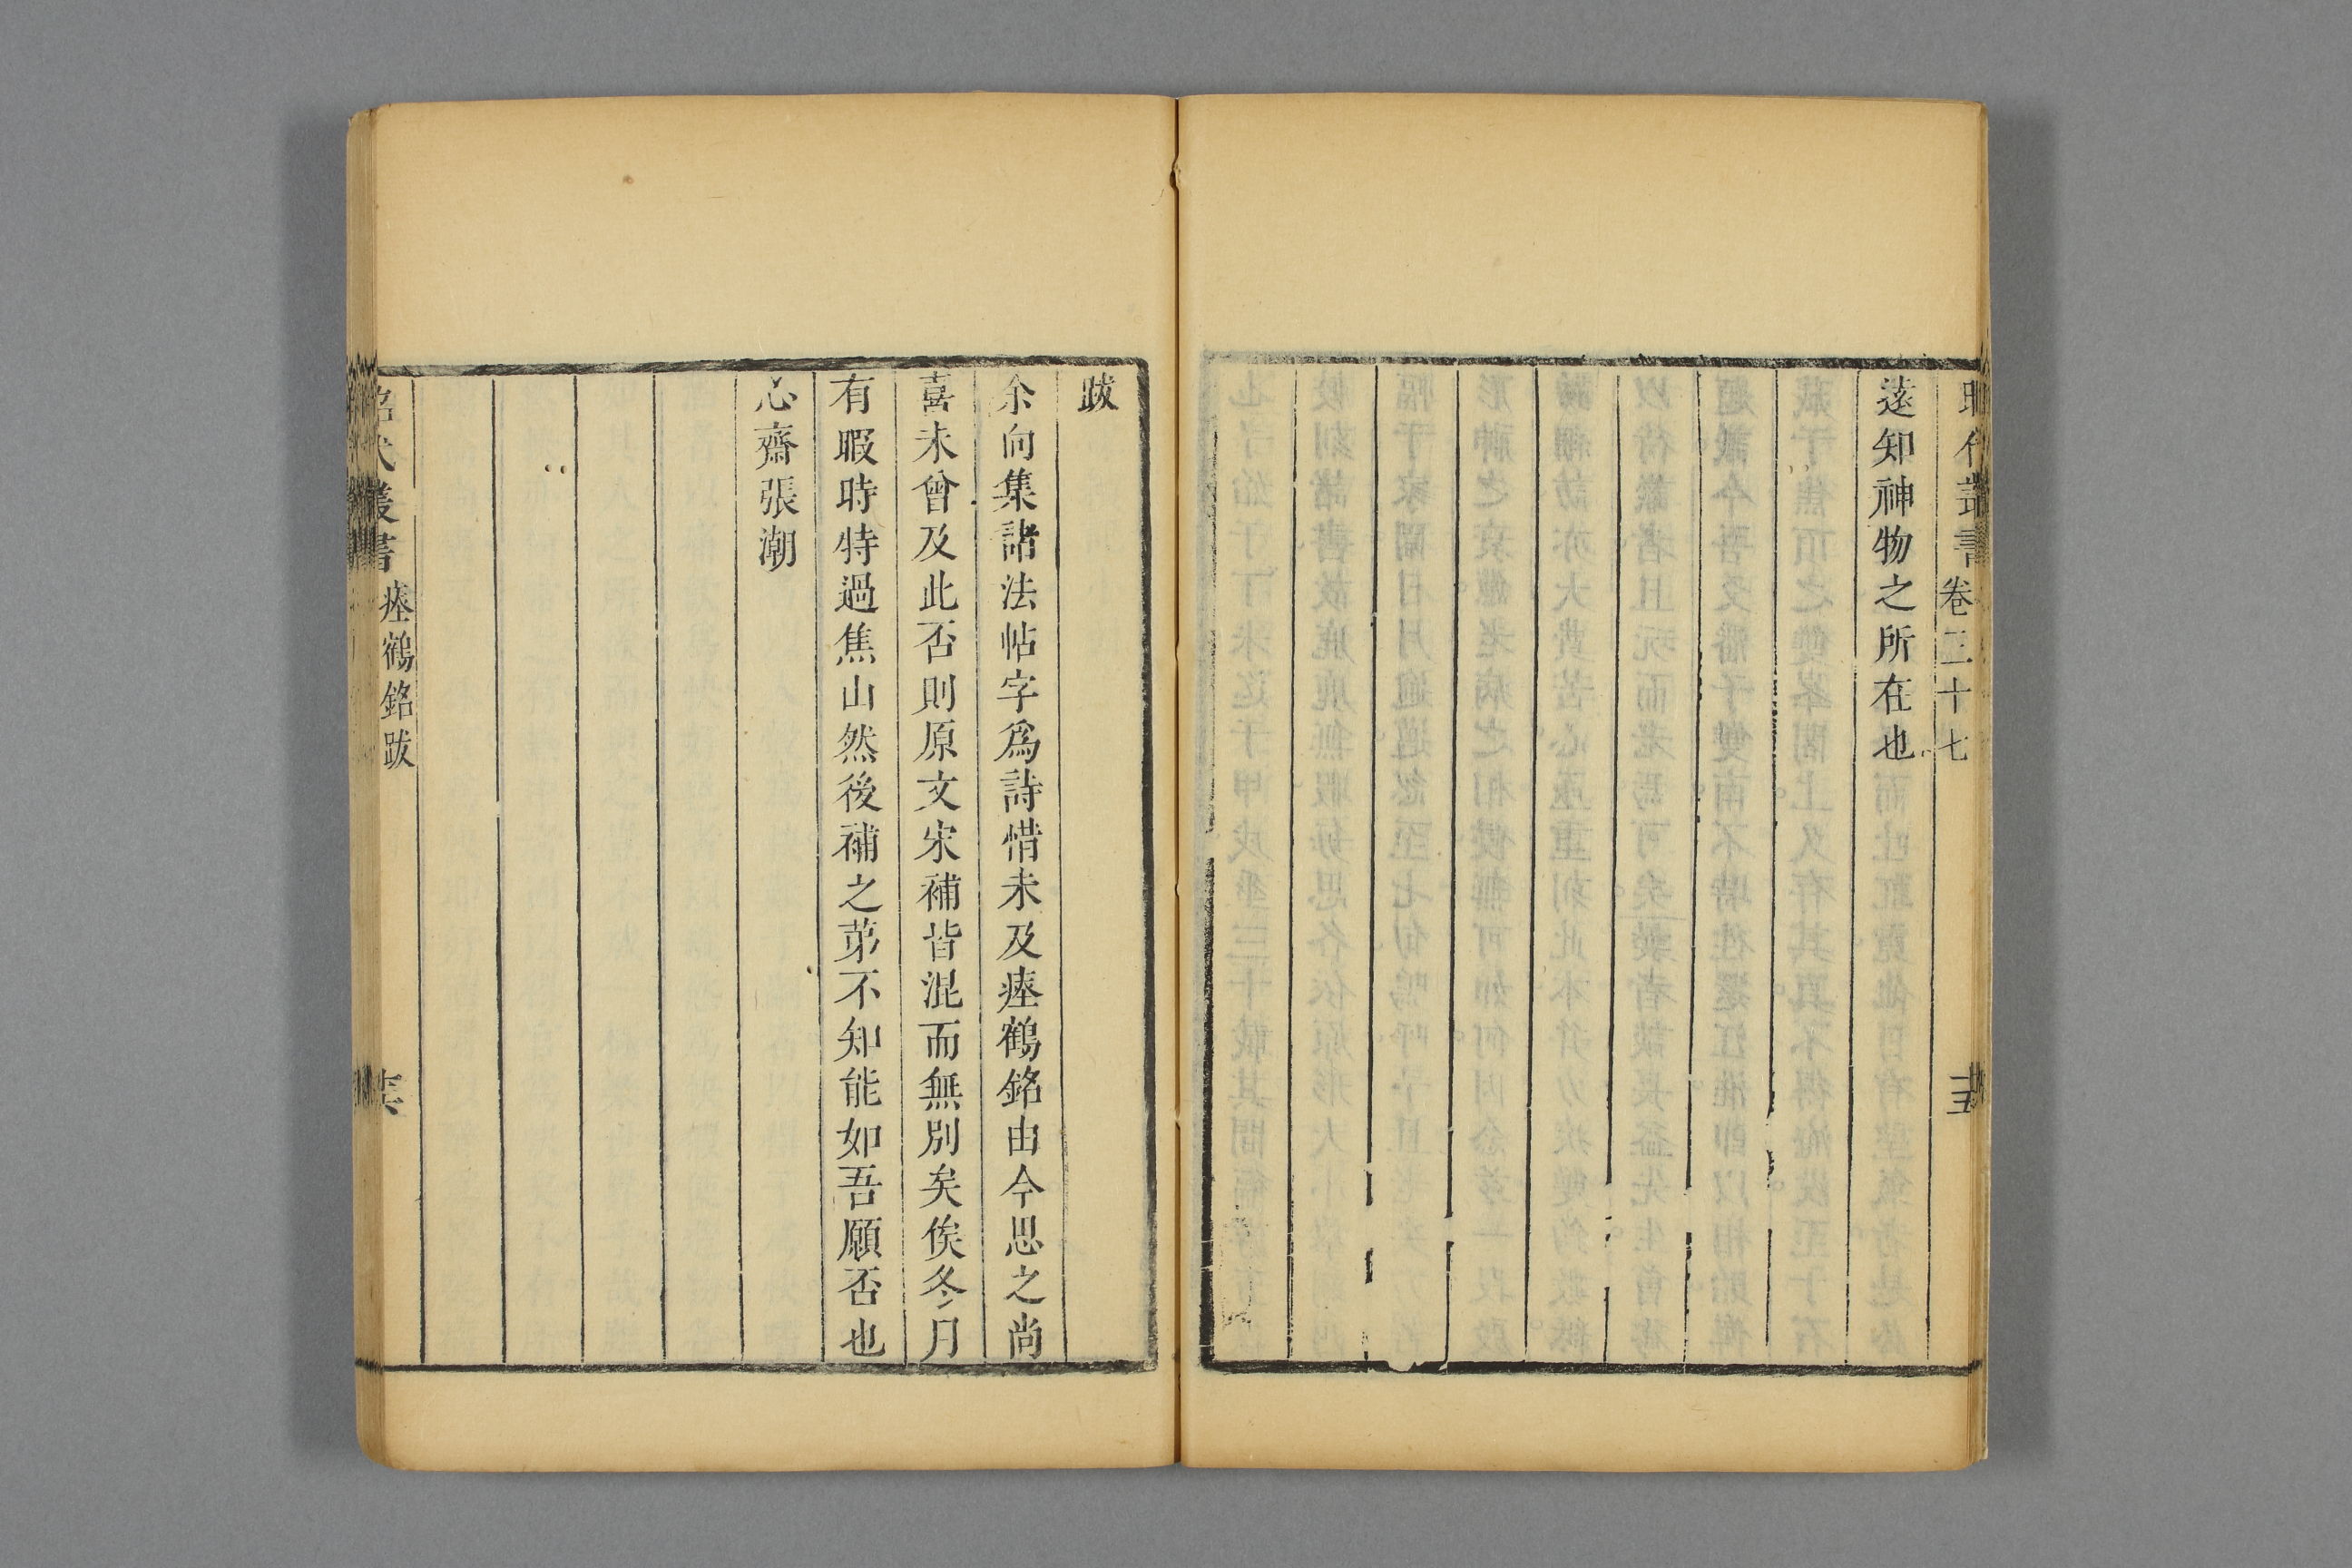 昭代叢書 卷三十七 十五
遠知神物之所在也
跋
余向集諸法帖字爲詩惜未及瘞鶴銘由今思之尚
喜未曾及此否則原文宋補皆混而無別矣俟冬月
有暇時特過焦山然後補之苐不知能如吾願否也
心齋張潮
昭代叢書 瘞鶴銘跋 十六